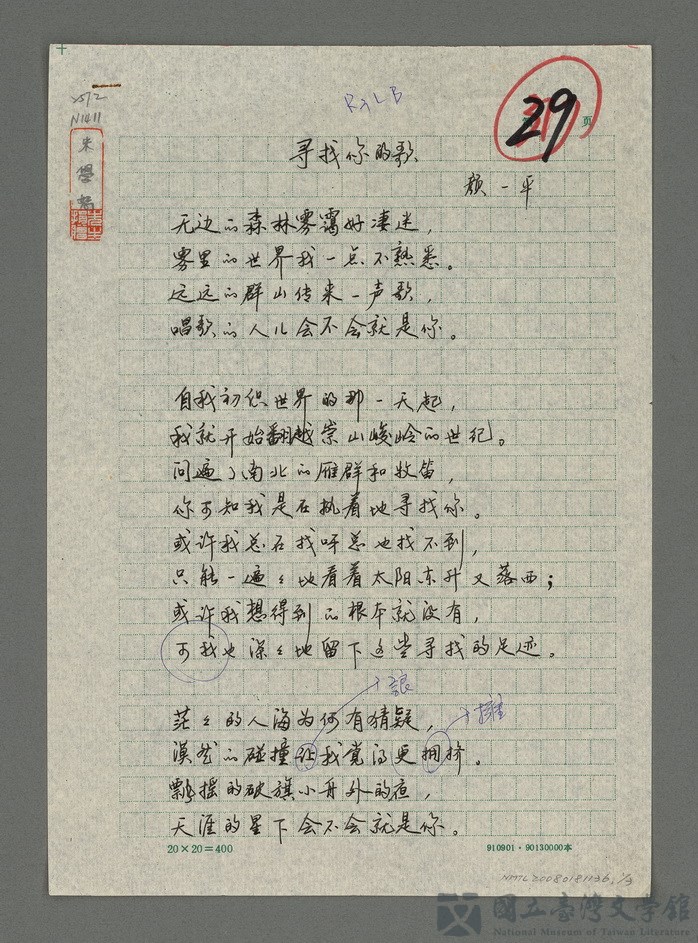 x5/2
N1411
朱學恕
R2LB
29
页
寻找你的歌
颜一平
无边的森林雾霭好凄迷，
雾里的世界我一点不熟悉。
远远的群山传来一声歌，
唱歌的人儿会不会就是你。
自我初识世界的那一天起，
我就开始翻越崇山峻岭的世纪。
问遍了南北的雁群和牧笛，
你可知我是在执着地寻找你。
或许我总在找呀总也找不到，
只能一遍々地看着太阳东升又落西；
或许我想得到的根本就没有，
可我也深々地留下这些寻找的足迹。
茫々的人海为何有猜疑，
漠然的碰撞让我觉得更拥挤。
讓
擁
飘摇的破旗小舟外的夜，
天涯的星下会不会就是你。
20×20=400
910901·90130000本
NMTL20080181136, 1/3
國立臺灣文學館
National Museum of Taiwan Literature